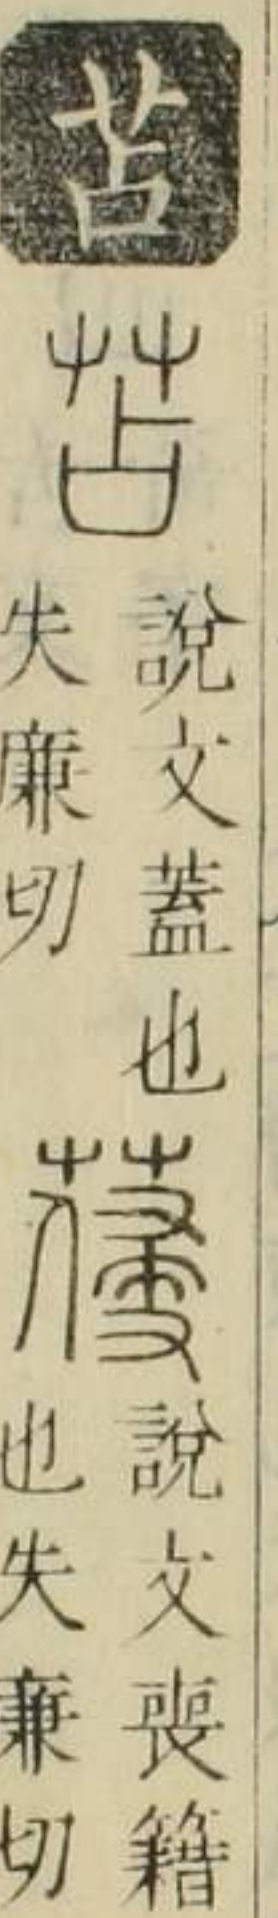 苫
苫
說文蓋也
失廉切
葠
說文喪籍
也失兼切